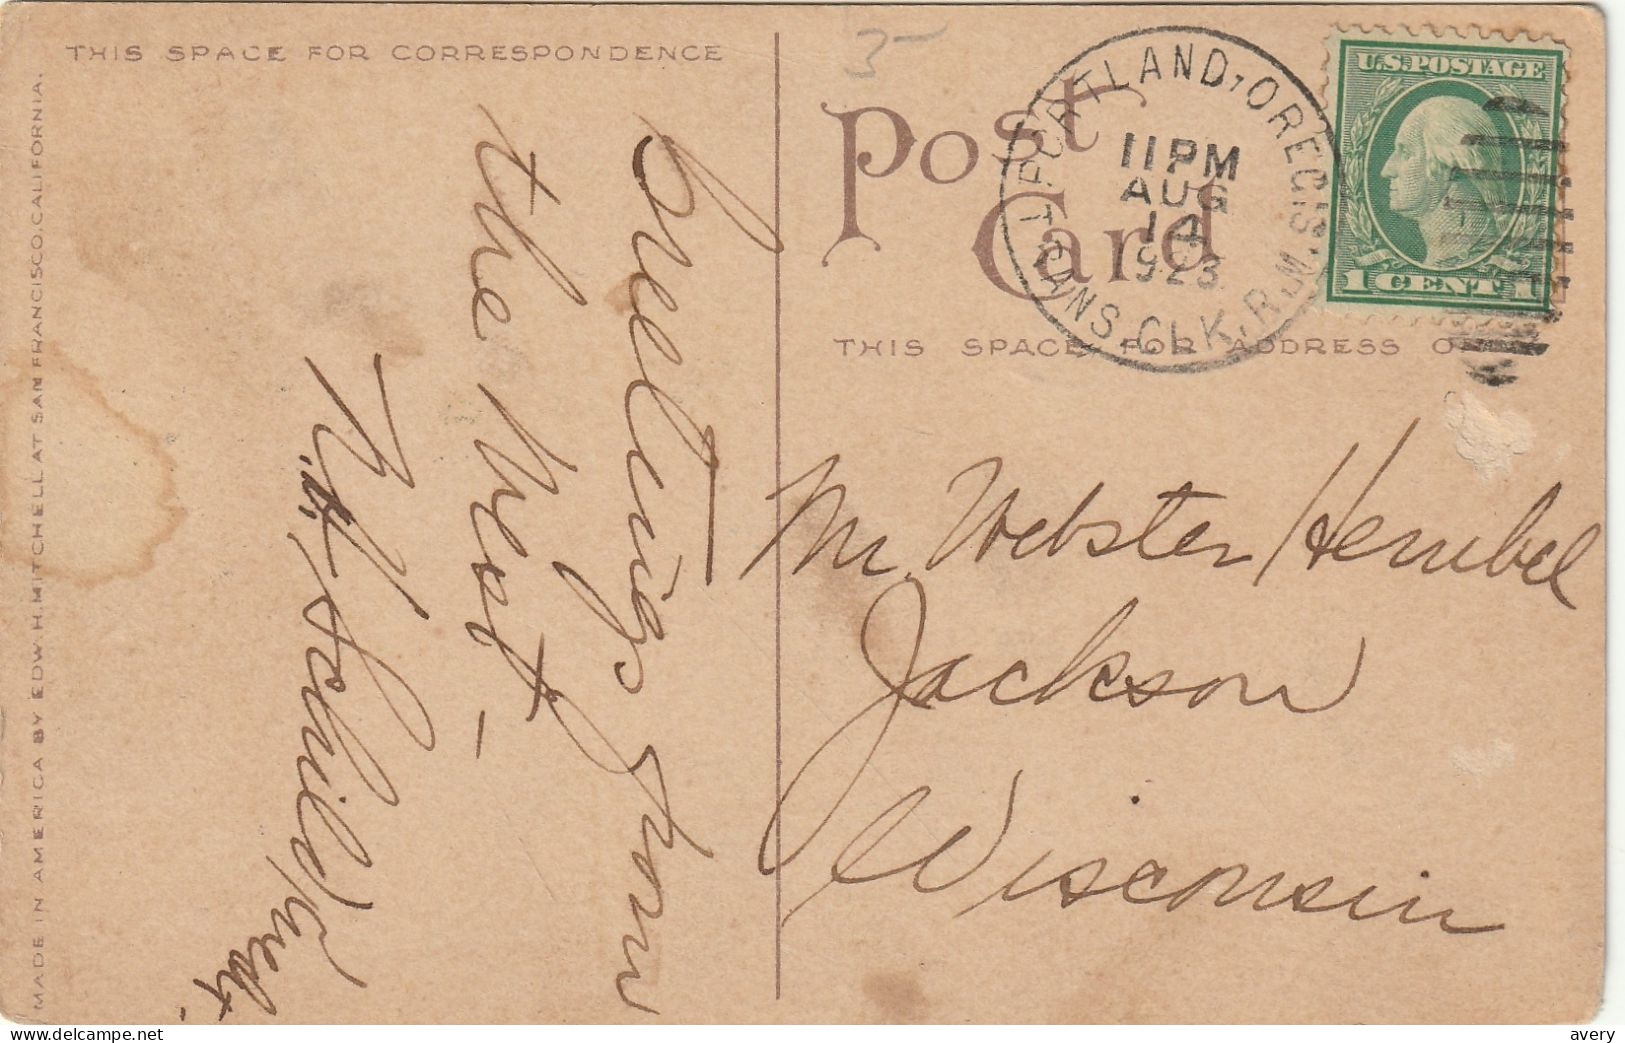 THIS SPACE FOR CORRESPONDENCE
MADE IN AMERICA BY EDW. H. MITCHELL AT SAN FRANCISCO, CALIFORNIA.
Greetings from
the West -
Post Card
PORTLAND, OREG. TRANS. CLK. R.M.S.
11 PM
AUG
14
1923
U.S. POSTAGE
1 CENT 1
THIS SPACE FOR ADDRESS O
3-
Mr. Webster Hembel
Jackson
Wisconsin
avery